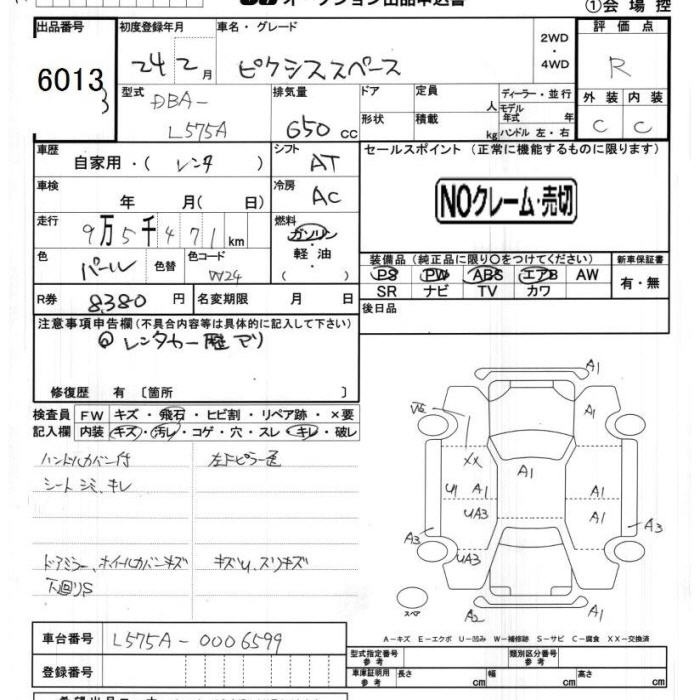 オークション出品申込書
①会場控
出品番号
6013
3
初度登録年月
24 2月
車名・グレード
ピクシススペース
2WD
・
4WD
評価点
R
型式
DBA-
L575A
排気量
650 cc
ドア
形状
定員 人
積載 kg
ディーラー・並行
モデル
年式 年
ハンドル 左・右
外装 内装
C C
車歴
自家用・(レンタ)
シフト
AT
セールスポイント(正常に機能するものに限ります)
車検
年 月( 日)
冷房
AC
NOクレーム・売切
走行
9万5千471 km
燃料
ガソリン
・
軽油
・
( )
色
パール
色替
色コード
W24
装備品(純正品に限り〇をつけてください)
PS PW ABS エアB AW
SR ナビ TV カワ
新車保証書
有・無
R券 8,380円
名変期限 月 日
後日品
注意事項申告欄(不具合内容等は具体的に記入して下さい)
レンタカー歴アリ
修復歴 有〔箇所 〕
検査員
記入欄
FW キズ・飛石・ヒビ割・リペア跡・×要
内装 キズ・汚レ・コゲ・穴・スレ・キレ・破レ
ハンドルカバー付
左Fピラー歪
シートシミ、キレ
ドアミラー、ホイールカバーキズ
キズU、スリキズ
下回りS
A1
A1
XX
A1
U1 A1
A1
UA3
A1
A3
A3
UA3
スペア
A2
A1
A-キズ E-エクボ U-凹み W-補修跡 S-サビ C-腐食 XX-交換済
車台番号
L575A-0006599
型式指定番号
参考
類別区分番号
参考
登録番号
車庫証明用
参考
長さ cm
幅 cm
高さ cm